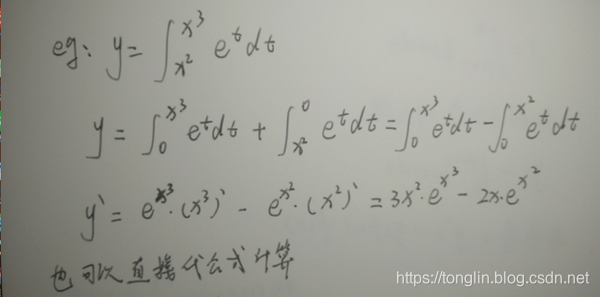 eg: y = ∫_{x²}^{x³} e^t dt
y = ∫_0^{x³} e^t dt + ∫_{x²}^0 e^t dt = ∫_0^{x³} e^t dt - ∫_0^{x²} e^t dt
y` = e^{x³}·(x³)` - e^{x²}·(x²)` = 3x²·e^{x³} - 2x·e^{x²}
也可以直接代公式计算
https://tonglin.blog.csdn.net